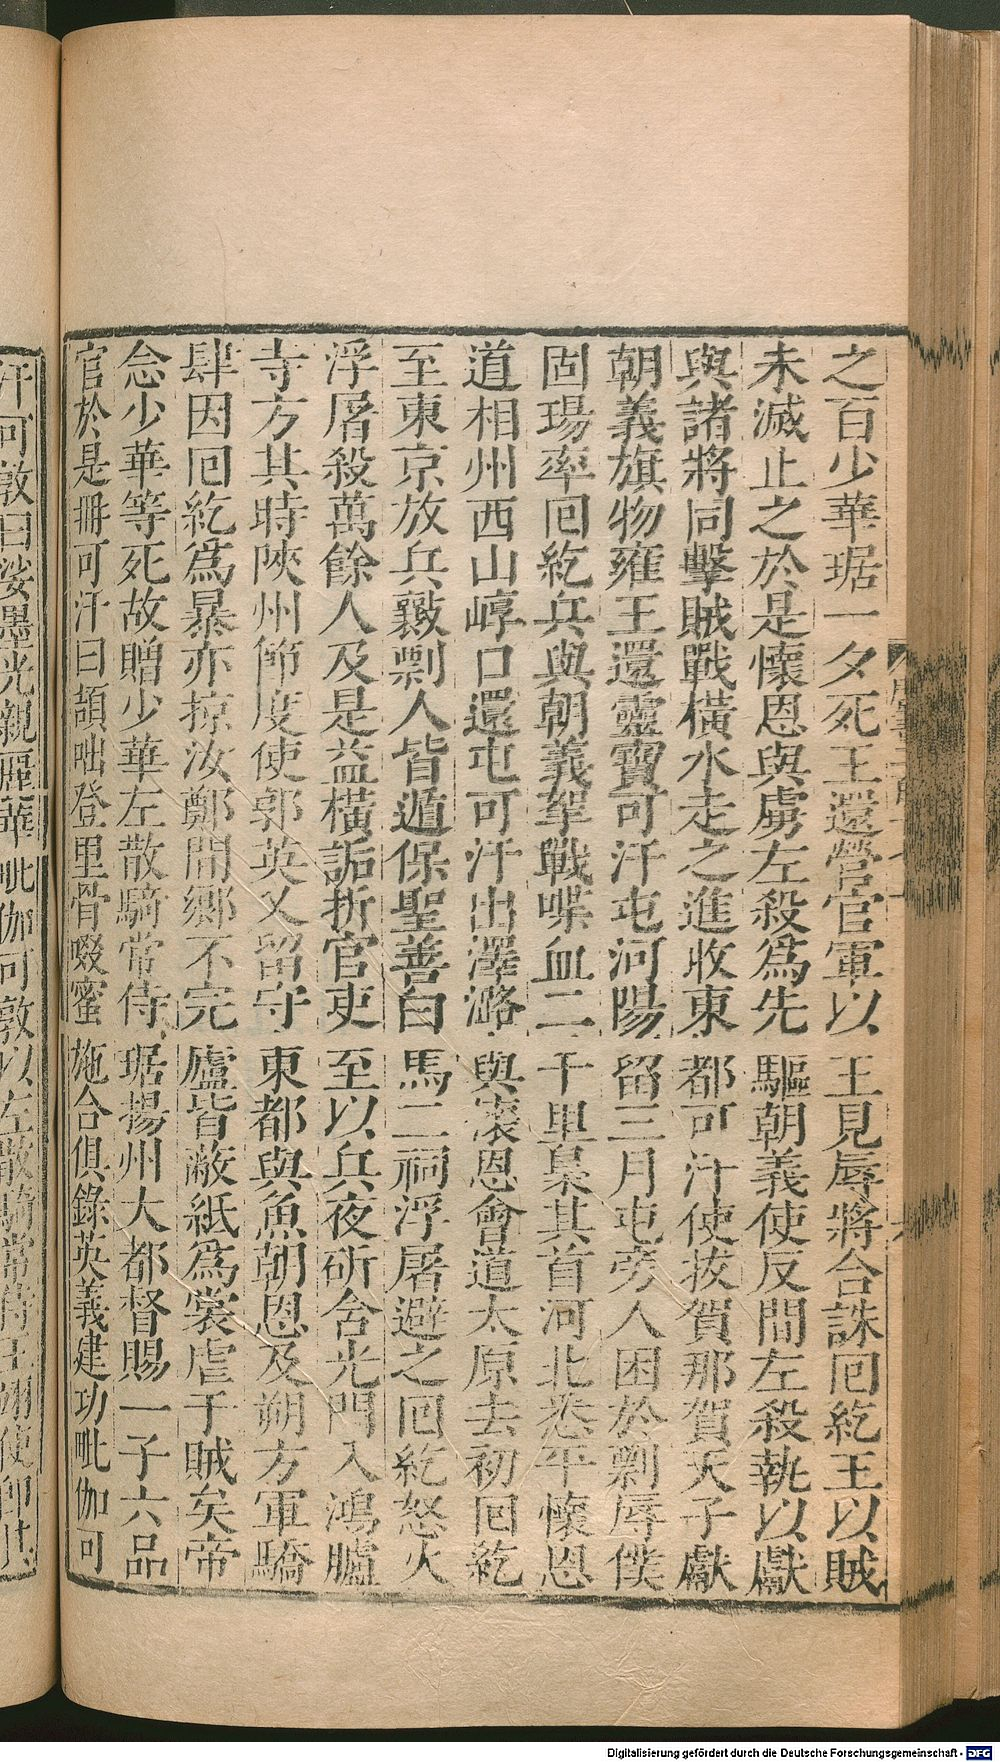 之百少華琚一夕死王還營官軍以王見辱將合誅回紇王以賊
未滅止之於是懷恩與虜左殺爲先驅朝義使反間左殺執以獻
與諸將同擊賊戰橫水走之進收東都可汗使拔賀那賀天子獻
朝義旗物雍王還靈寶可汗屯河陽留三月屯旁人困於剽辱僕
固瑒率回紇兵與朝義挐戰喋血二千里梟其首河北悉平懷恩
道相州西山崞口還屯可汗出澤潞與懷恩會道太原去初回紇
至東京放兵攘剽人皆遁保聖善白馬二祠浮屠避之回紇怒火
浮屠殺萬餘人及是益橫詬折官吏至以兵夜斫含光門入鴻臚
寺方其時陜州節度使郭英乂留守東都與魚朝恩及朔方軍驕
肆因回紇爲暴亦掠汝鄭間鄉不完廬皆蔽紙爲裳虐于賊矣帝
念少華等死故贈少華左散騎常侍琚揚州大都督賜一子六品
官於是冊可汗曰頡咄登里骨啜蜜施合俱錄英義建功毗伽可
汗可敦曰娑墨光親麗華毗伽可敦以左散騎常侍王翊使即其
Digitalisierung gefördert durch die Deutsche Forschungsgemeinschaft - DFG